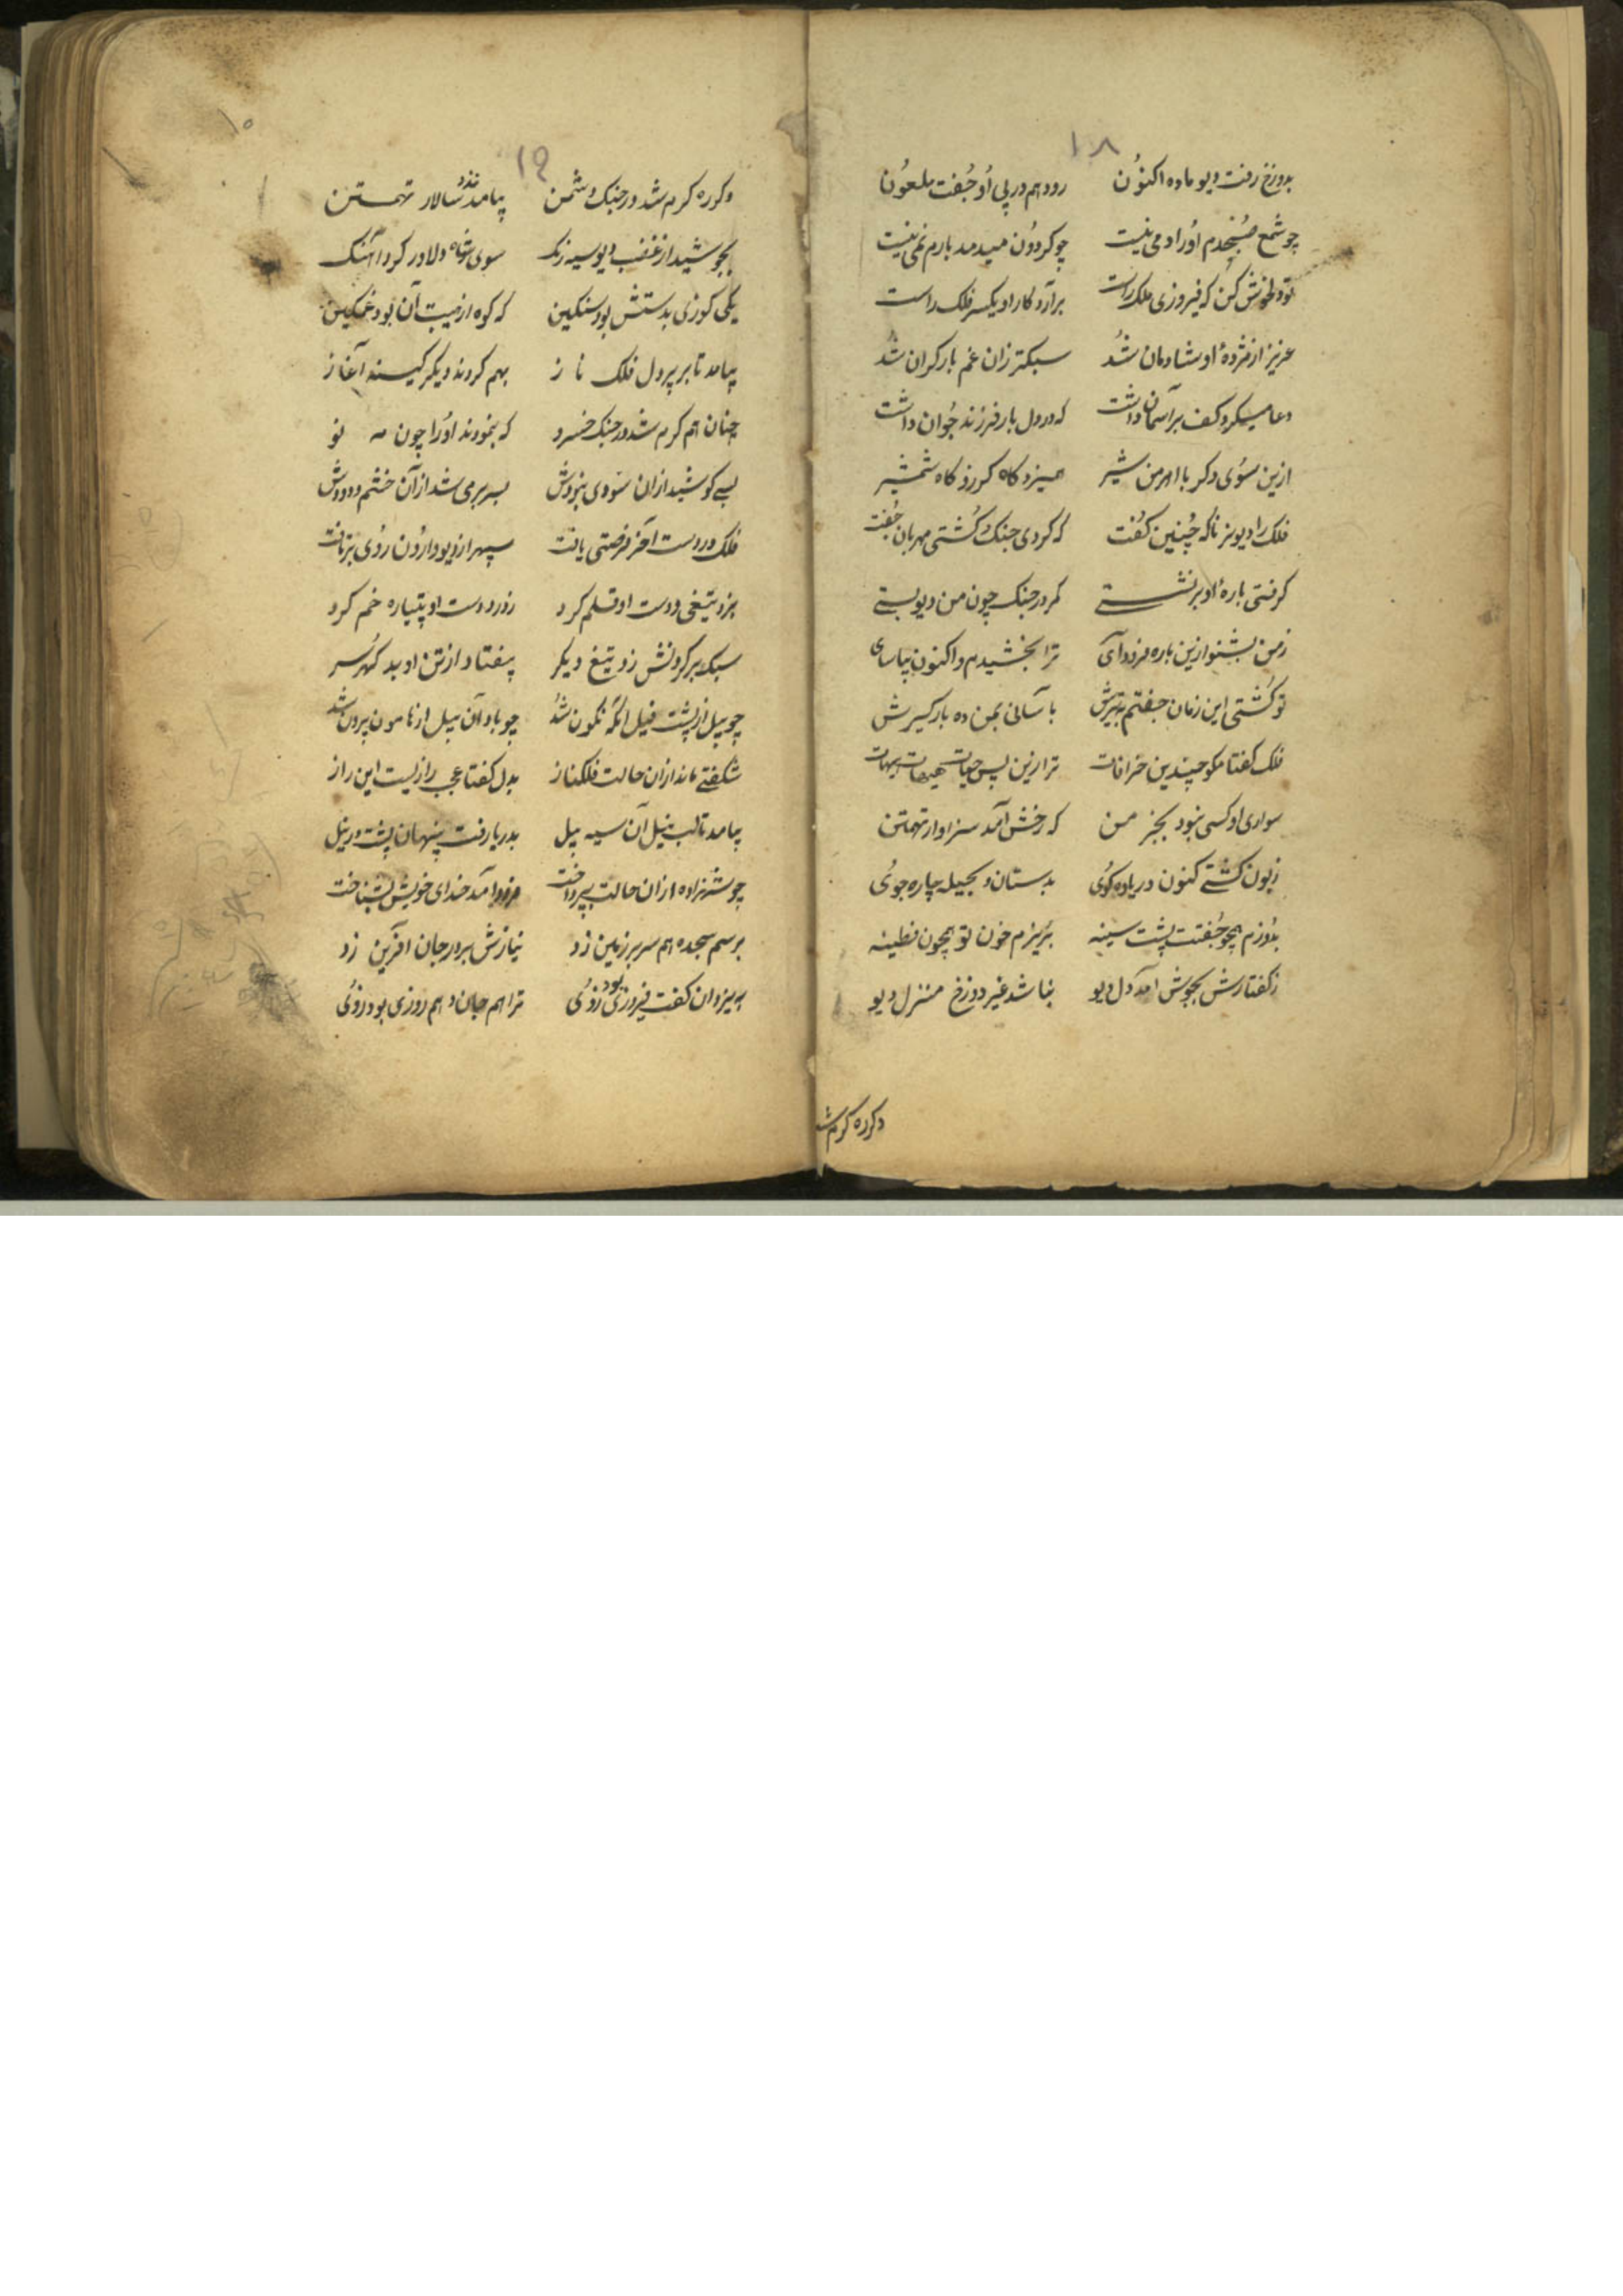 ۱۸
بدوزخ رفت دیو ماده اکنون رود هم در پی او جفت ملعون
چو شمع صبحدم او را دمی نیست چو کردون میدمد بارم نمی نیست
تو دلخوش کن که فیروزی ملک راست برآرد کار او یکسر فلک راست
عزیز از مژدهٔ او شادمان شد سبکتر زان غم بار کران شد
دعا میکرد و کف بر آسمان داشت که در دل بار فرزند جوان داشت
ازین سوی دکر با اهرمن شیر همیزد کاه کرز و کاه شمشیر
فلک را دیو نر ناکه چنین کفت که کردی جنک و کشتی مهربان جفت
کرفتی بارهٔ او بر نشستی کمر در جنک چون من دیو بستی
ز من بشنو ازین باره فرود آی ترا بخشیدم و اکنون بیاسای
تو کشتی این زمان جفتم به تیرش بآسانی بمن ده بارکیرش
فلک کفتا مکو چندین خرافات ترا زین پس حیات هیهات هیهات
سواری او کسی نبود بجز من که رخش آمد سزاوار تهمتن
زبون کشتی کنون در یاوه کوئی بدستان و بحیله چاره جوئی
بدوزم همچو جفتت پشت سینه بریزم خون تو همچون قطینه
ز کفتارش بجوش آمد دل دیو نباشد غیر دوزخ منزل دیو
دکرره کرم شد
۱۹
دکرره کرم شد در جنک دشمن بیامد نزد سالار تهمتن
بجوشید از غضب دیو سیه رنک سوی شاه دلاور کرد آهنک
یکی کرزی بدستش بود سنکین که کوه از هیبت آن بود غمکین
بیامد تا بر پر دل فلک ناز بهم کردند دیکر کینه آغاز
چنان هم کرم شد در جنک خسرو که بنمودند او را چون مه نو
بسی کوشید ازان سودی نبودش بسر بر می شد از آن خشم دودش
فلک در دست آخر فرصتی یافت سپهر از دیو وارون روی برتافت
بزد تیغی و دست او قلم کرد ز درد دست او پتیاره خم کرد
سبک بر کردنش زد تیغ دیکر بیفتاد از تن او بد کهر سر
چو پیل از پشت فیل آنکه نکون شد چو باد آن پیل از هامون برون شد
شکفتی ماند ازان حالت فلکناز بدل کفتا عجب رازیست این راز
بیامد تا لب نیل آن سیه پیل بدریا رفت پنهان پشت در نیل
چو شهزاده ازان حالت بپرداخت فرود آمد خدای خویش بشناخت
برسم سجده هم سر بر زمین زد نیازش بر در جان آفرین زد
به یزدان کفت فیروزی بود زوئی ترا هم جان و هم روزی بود زوئی